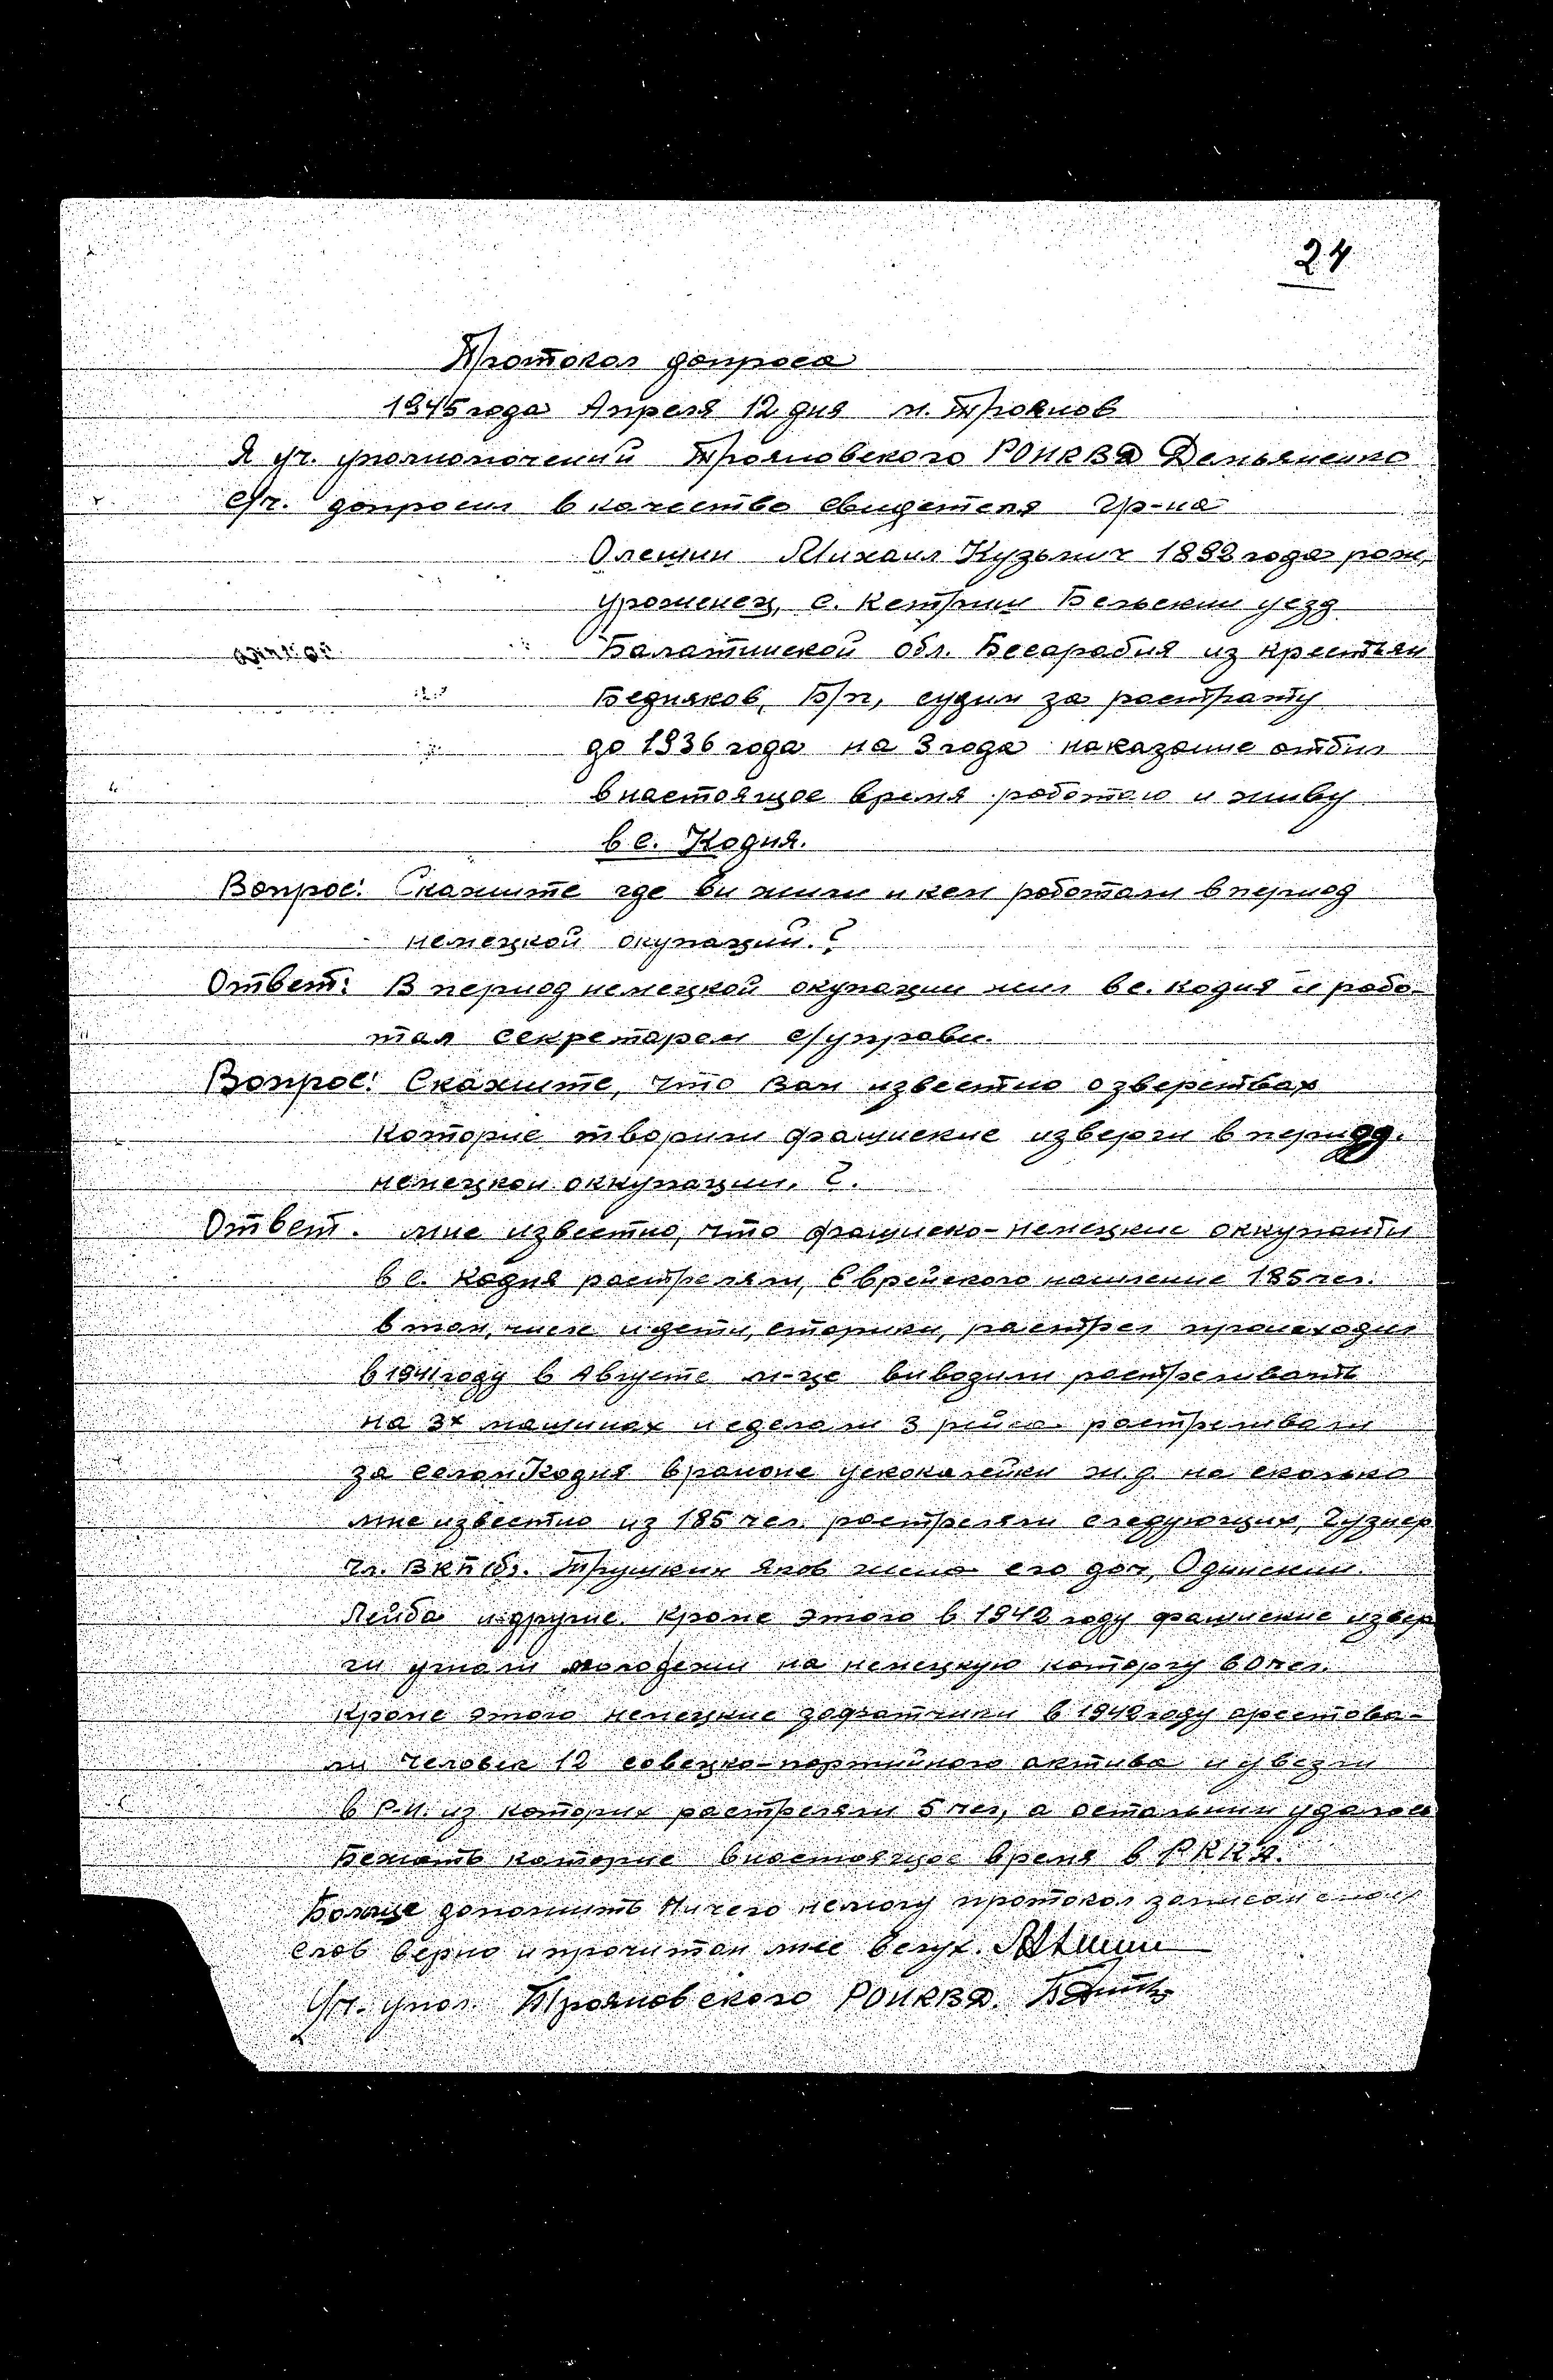 24
Протокол допроса
1945 года Апреля 12 дня м. Троянов
Я уч. уполномочений Трояновского РОНКВД Демьяненко
с/ч. допросил в качество свидетеля гр-на
Олешин Михаил Кузьмич 1892 года рож,
уроженец, с. Кетриш Бельским уезд
Балатинской обл. Бесарабия из крестьян
Бедняков, Б/п, судим за растрату
до 1936 года на 3 года наказание отбил
в настоящое время работаю и живу
в с. Кодня.
Вопрос: Скажите где ви жили и кем работали в период
немецкой окупаций.?
Ответ: В период немецкой окупации жил в с. кодня и рабо-
тал секретарем с/управи.
Вопрос: Скажите, что Вам известно о зверствах
которие творили фашиские изверги в период.
немецкои оккупации. ?.
Ответ. мне известно, что фашиско-немецкие оккупанти
в с. Кодня растреляли, Еврейского население 185 чел.
в том, числе и дети, старики, растрел происходил
в 1941 году в Августе м-це виводили растреливать
на 3х машинах и сделали 3 рейса растреливали
за селом Кодня в районе ускокалейки ж.д. на сколько
мне известно из 185 чел. растреляли следующих, Гузнер
Чл. ВКП(б). Трушкин Яков жена его доч, Одинским
Лейба и другие. Кроме этого в 1942 году фашиские извер
ги угнали молодежи на немецкую каторгу 60 чел.
Кроме этого немецкие зафатчики в 1942 году арестова-
ли человек 12 совецко-партийного актива и увезли
в Р-н. из которих растреляли 5 чел, а остальним удалось
Бежать которие в настоящое время в РККА.
Больше дополнить Ничего немогу протокол записан с моих
слов верно и прочитан мне вслух.
Уч. упол. Трояновского РОНКВД.